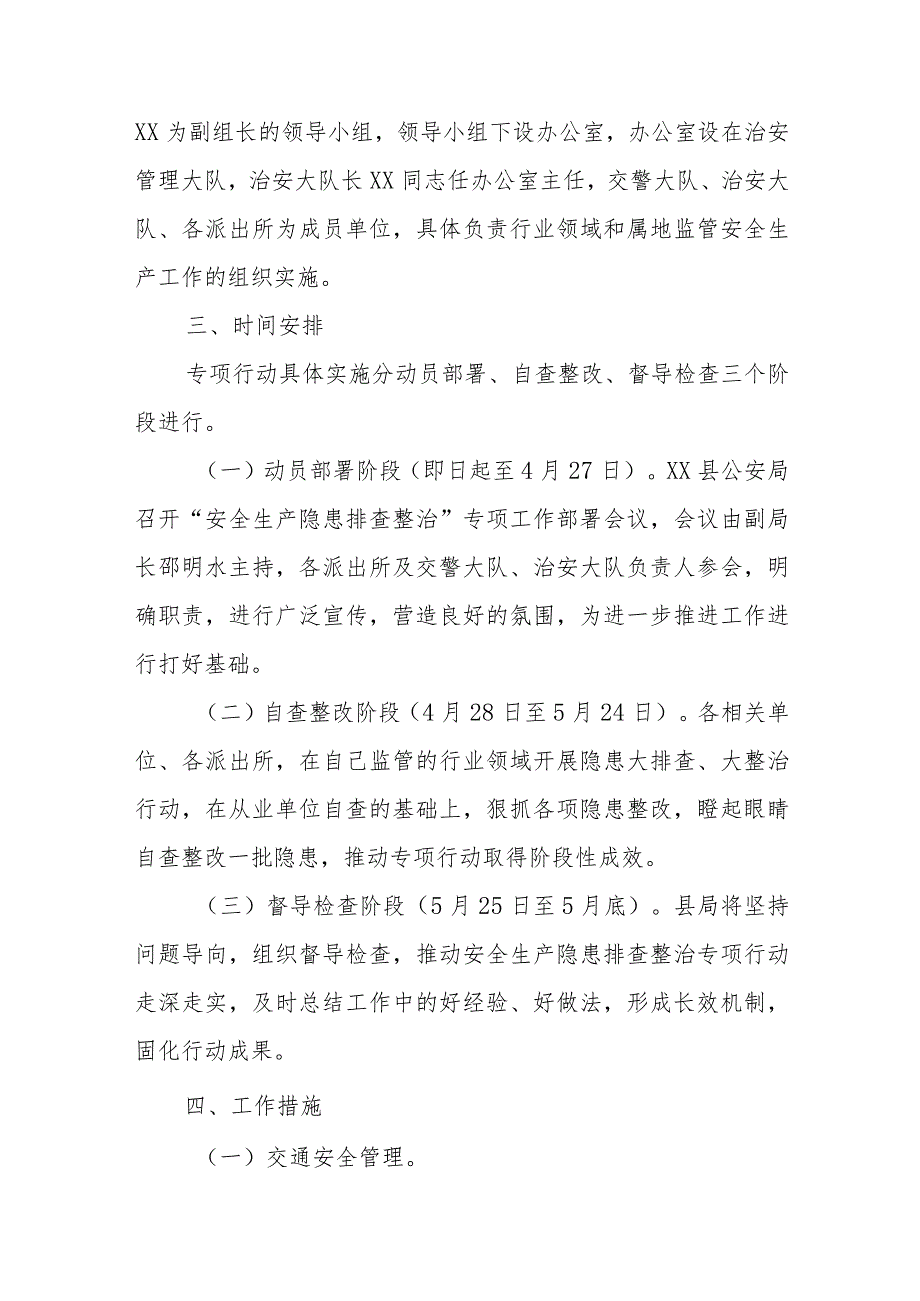 XX为副组长的领导小组，领导小组下设办公室，办公室设在治安
管理大队，治安大队长XX同志任办公室主任，交警大队、治安大
队、各派出所为成员单位，具体负责行业领域和属地监管安全生
产工作的组织实施。
三、时间安排
专项行动具体实施分动员部署、自查整改、督导检查三个阶
段进行。
（一）动员部署阶段（即日起至4月27日）。XX县公安局
召开“安全生产隐患排查整治”专项工作部署会议，会议由副局
长邵明水主持，各派出所及交警大队、治安大队负责人参会，明
确职责，进行广泛宣传，营造良好的氛围，为进一步推进工作进
行打好基础。
（二）自查整改阶段（4月28日至5月24日）。各相关单
位、各派出所，在自己监管的行业领域开展隐患大排查、大整治
行动，在从业单位自查的基础上，狠抓各项隐患整改，瞪起眼睛
自查整改一批隐患，推动专项行动取得阶段性成效。
（三）督导检查阶段（5月25日至5月底）。县局将坚持
问题导向，组织督导检查，推动安全生产隐患排查整治专项行动
走深走实，及时总结工作中的好经验、好做法，形成长效机制，
固化行动成果。
四、工作措施
（一）交通安全管理。